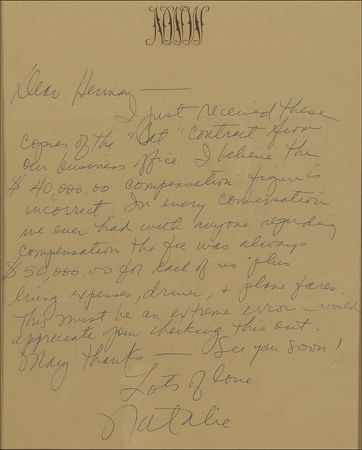 Dear Herman —
I just received these
copies of the "Cat" contract from
our business office. I believe the
$40,000.00 compensation figure is
incorrect. In every conversation
we ever had with anyone regarding
compensation the fee was always
$50,000.00 for each of us plus
living expenses, driver, + plane fares.
This must be an extreme error – would
appreciate your checking this out.
Many thanks — See you soon!
Lots of love
Natalie